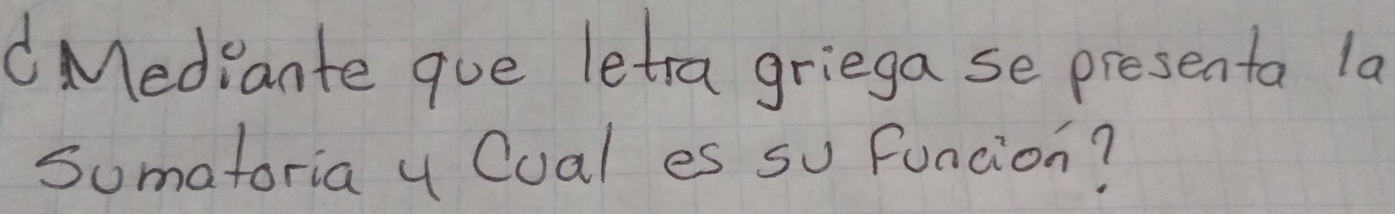 ¿Mediante que letra griega se presenta la
sumatoria y Cual es su función?